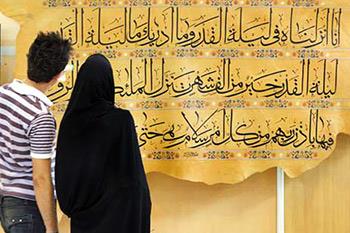 انا انزلناه فی لیلة القدر وما أدریك ما لیلة القدر
لیلة القدر خیر من الف شهر تنزل الملئكة والرو
فیها باذن ربهم من كل امر سلام هی حتی